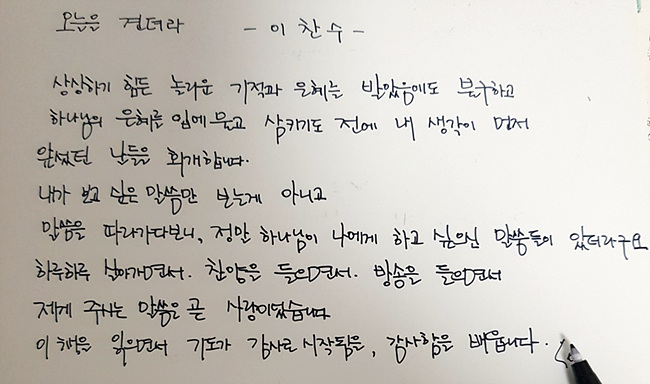 오늘을 견뎌라 - 이찬수 -
상상하기 힘든 놀라운 기적과 은혜를 받았음에도 불구하고
하나님의 은혜를 입에 물고 삼키기도 전에 내 생각이 먼저
앞섰던 날들을 회개합니다.
내가 보고 싶은 말씀만 보는게 아니고
말씀을 따라가다보니, 정말 하나님이 나에게 하고 싶으신 말씀들이 있더라구요
하루하루 살아가면서. 찬양을 들으면서. 방송을 들으면서
제게 주시는 말씀은 곧 사랑이었습니다
이 책을 읽으면서 기도가 감사로 시작됨을, 감사함을 배웁니다.